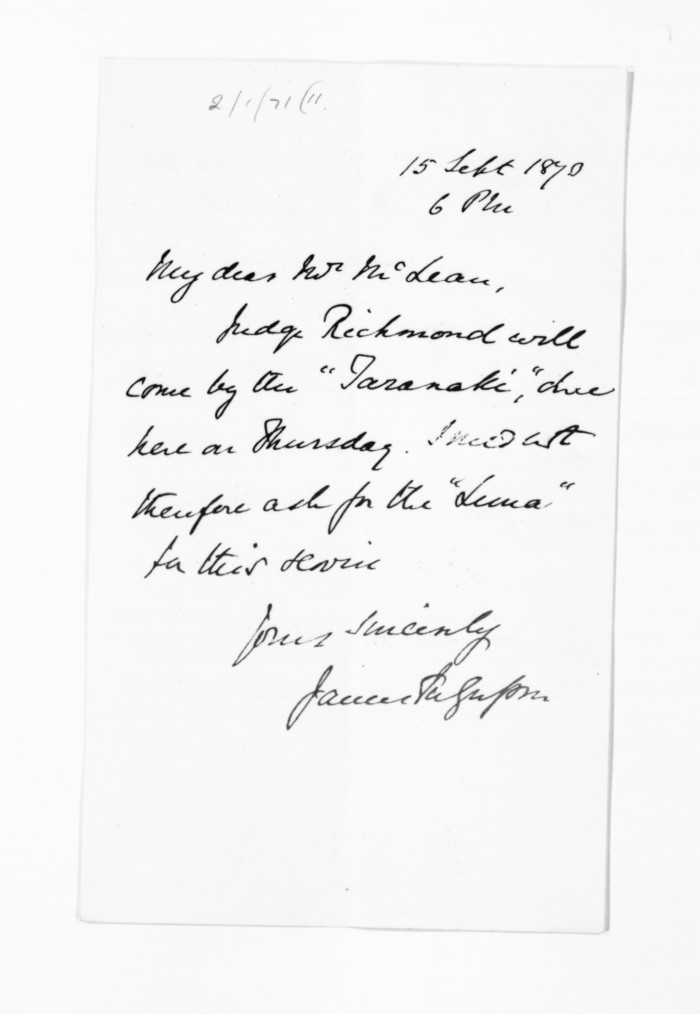 2/1/71(11.
15 Sept 1870
6 PM
My dear Mr McLean,
Judge Richmond will
come by the "Taranaki", due
here on Thursday. I need not
therefore ask for the "Luna"
for this service
Yours sincerely
James